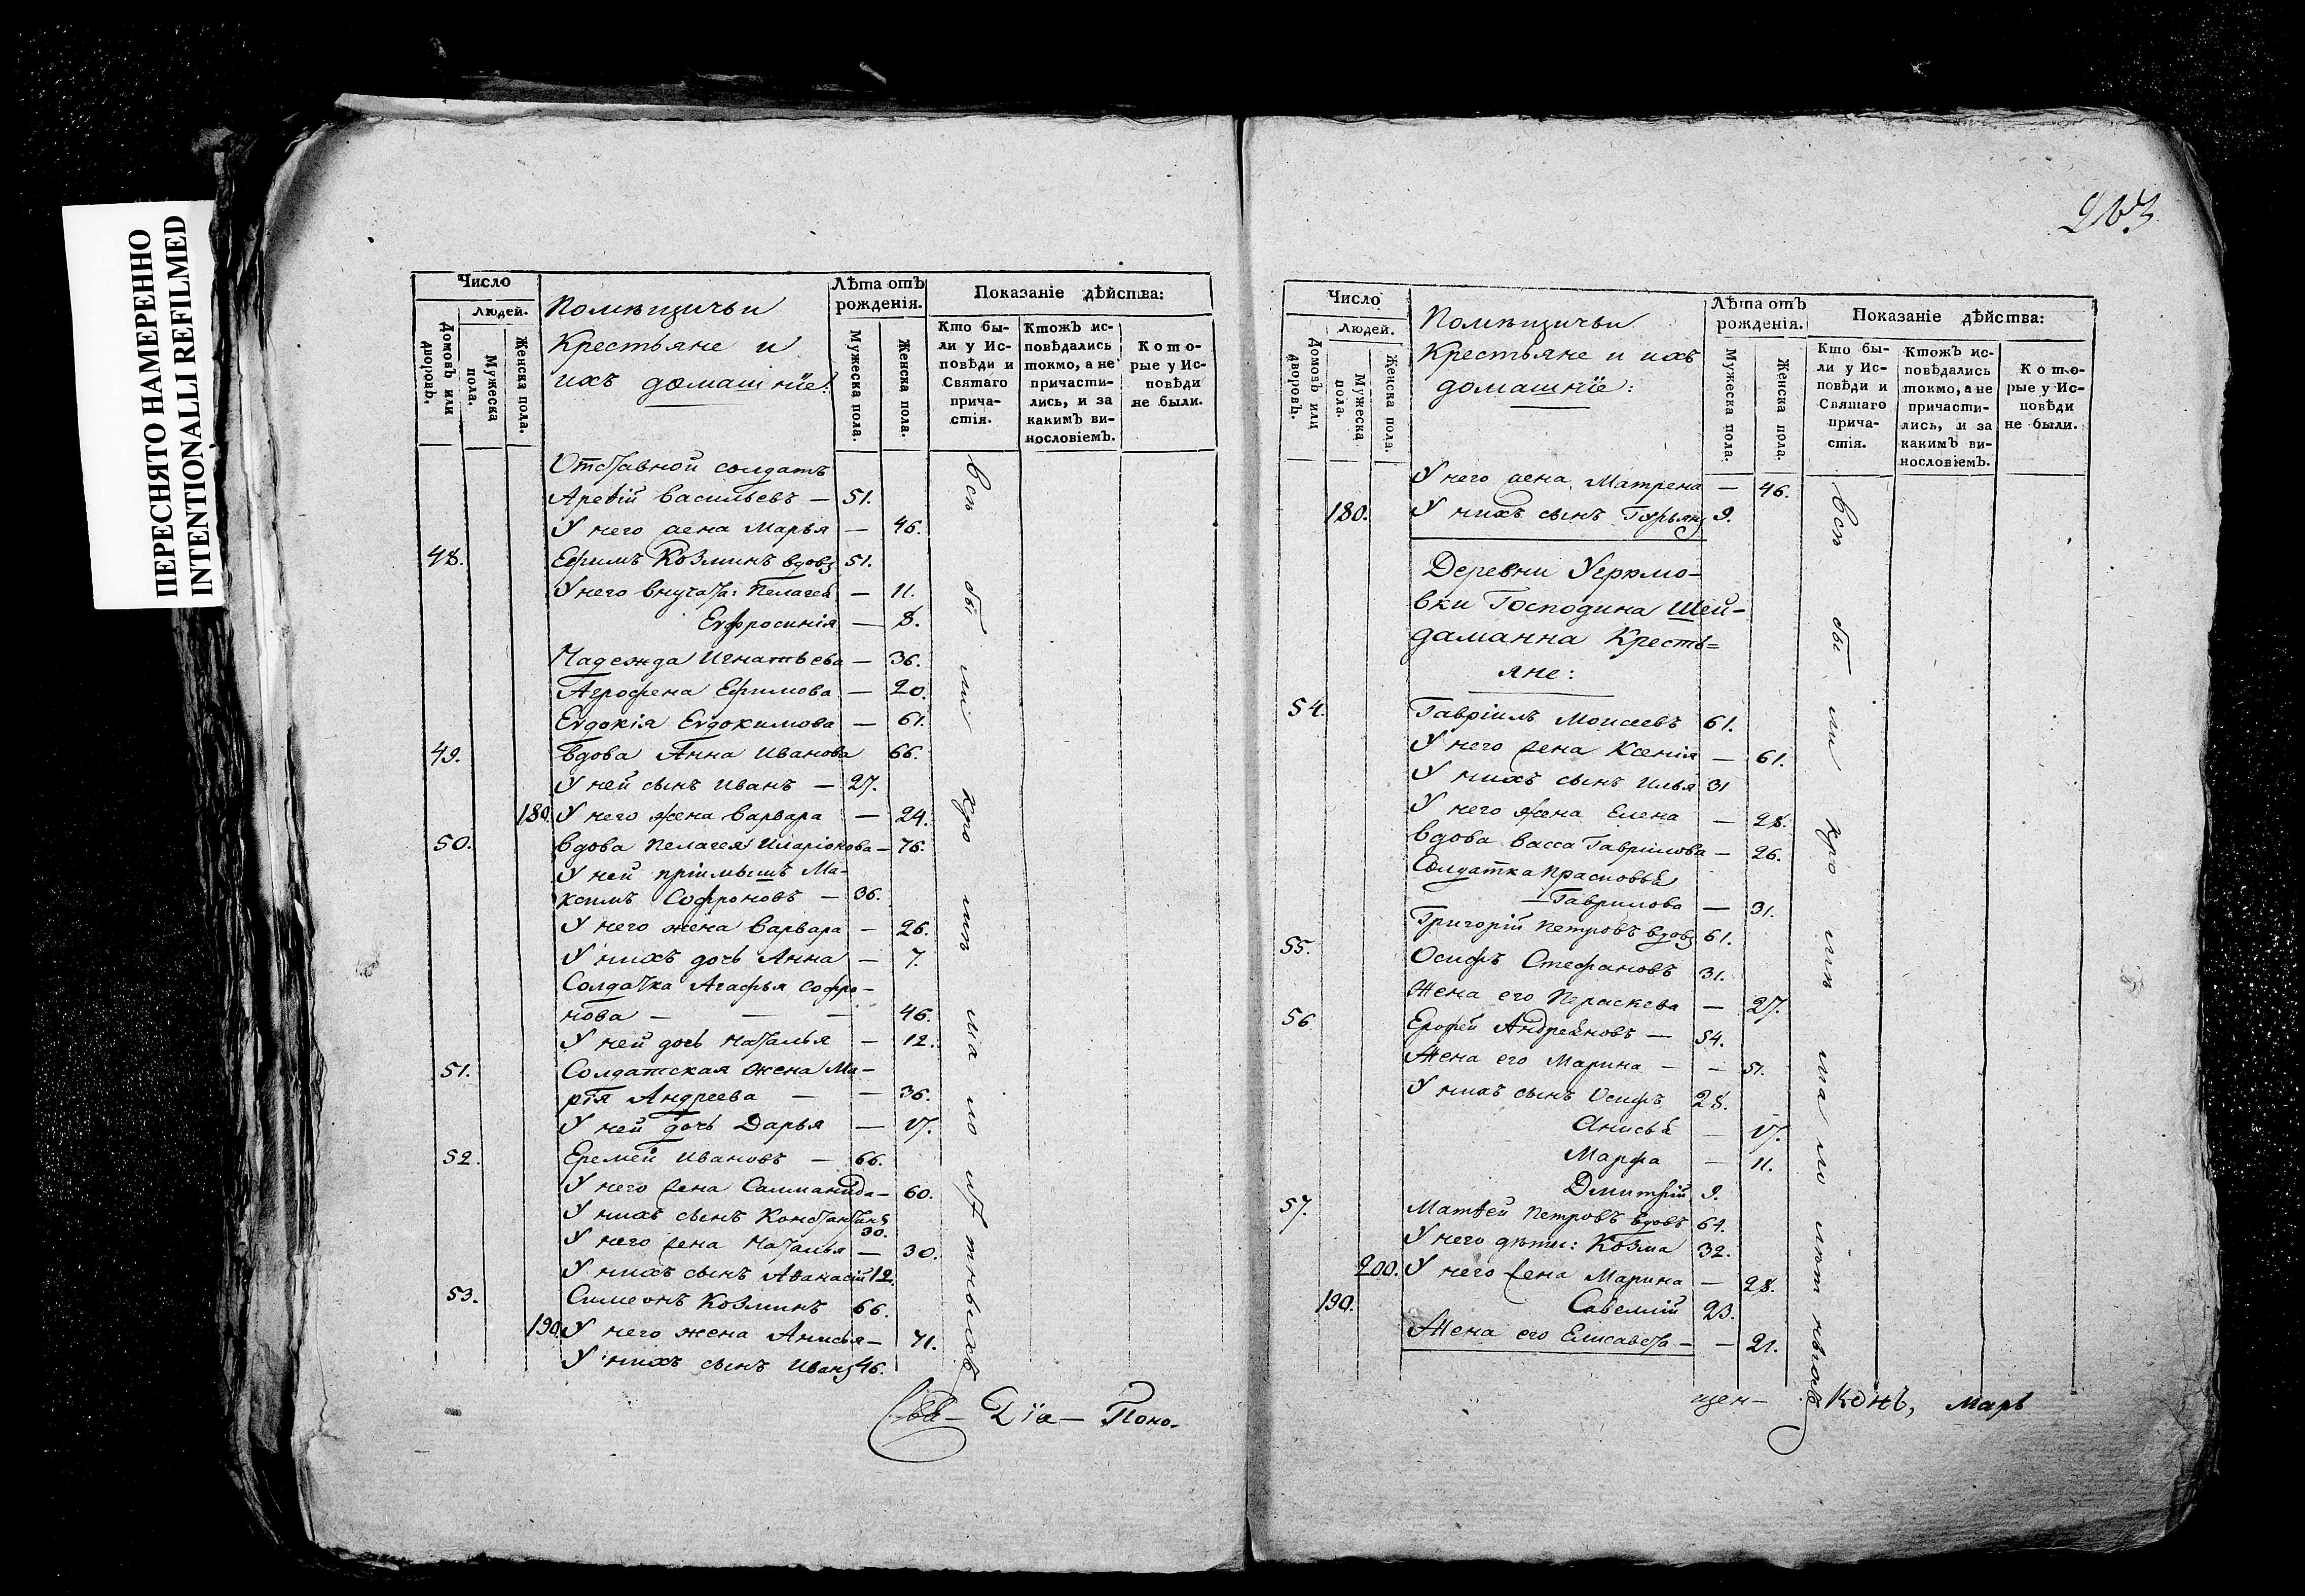 ПЕРЕСНЯТО НАМЕРЕННО
INTENTIONALLI REFILMED
Число
людей.
Домовъ или дворовъ.
Мужеска пола.
Женска пола.
Помѣщичьи
Крестьяне и
ихъ домашнїе:
Лѣта отъ
рожденія.
Мужеска пола.
Женска пола.
Показаніе дѣйства:
Кто бы-
ли у Ис-
повѣди и
Святаго
прича-
стія.
Ктожъ ис-
повѣдались
токмо, а не
причасти-
лись, и за
какимъ ви-
нословіемъ.
Кото-
рые у Ис-
повѣди
не были.
Отставной солдатъ
Арефій Васильевъ — 51.
У него жена Марья — 46.
48. Ефимъ Козминъ вдовъ 51.
У него внучата: Пелагея — 11.
Еѵфросинія — 8.
Надежда Игнатьева — 36.
Агрофена Ефимова — 20.
Еѵдокія Еѵдокимова — 61.
49. Вдова Анна Иванова 66.
У ней сынъ Иванъ — 27.
180. У него жена Варвара — 24.
50. Вдова Пелагея Иларіонова — 76.
У ней пріимышъ Ма-
ксимъ Софроновъ — 36.
У него жена Варвара — 26.
У нихъ дочь Анна — 7.
Солдатка Агафья Софро-
нова — — — 46.
У ней дочь Наталья — 12.
51. Солдатская жена Ма-
рѳа Андреева — — 36.
У ней дочь Дарья — 17.
52. Еремей Ивановъ — 66.
У него жена Саломанида — 60.
У нихъ сынъ Константинъ
30.
У него жена Наталья — 30.
У нихъ сынъ Аѳанасій 12.
53. Симеонъ Козминъ 66.
190. У него жена Анисья — 71.
У нихъ сынъ Иванъ 46.
всѣ бы ли кро мѣ ма ло лѣт нѣихъ
Свя — Дїа — Поно-
263
Число
людей.
Домовъ или дворовъ.
Мужеска пола.
Женска пола.
Помѣщичьи
Крестьяне и ихъ
домашнїе:
Лѣта отъ
рожденія.
Мужеска пола.
Женска пола.
Показаніе дѣйства:
Кто бы-
ли у Ис-
повѣди и
Святаго
прича-
стія.
Ктожъ ис-
повѣдались
токмо, а не
причасти-
лись, и за
какимъ ви-
нословіемъ.
Кото-
рые у Ис-
повѣди
не были.
У него жена Матрена — 46.
180. У нихъ сынъ Гурьянъ 9.
Деревни Угрюмо-
вки Господина Шей-
даманна Кресть=
яне:
54. Гавріилъ Моисеевъ 61.
У него жена Ксенія — 61.
У нихъ сынъ Илья 31
У него жена Елена — 28.
Вдова Васса Гаврилова — 26.
Солдатка Прасковья
Гаврилова — 31.
Григорій Петровъ вдовъ 61.
55. Осифъ Стефановъ 31.
Жена его Параскева — 27.
56 Ерофей Андреяновъ — 54.
Жена его Марина — — 51.
У нихъ сынъ Осифъ 28.
Анисья — 17.
Марфа — 11.
Дмитрій 9.
57. Матвей Петровъ вдовъ 64.
У него дѣти: Козма 32.
200. У него жена Марина — 28.
190. Савелій 23.
Жена его Елисавета — — 21.
всѣ бы ли кро мѣ ма ло лѣт нѣихъ
щен — Конъ, Марь